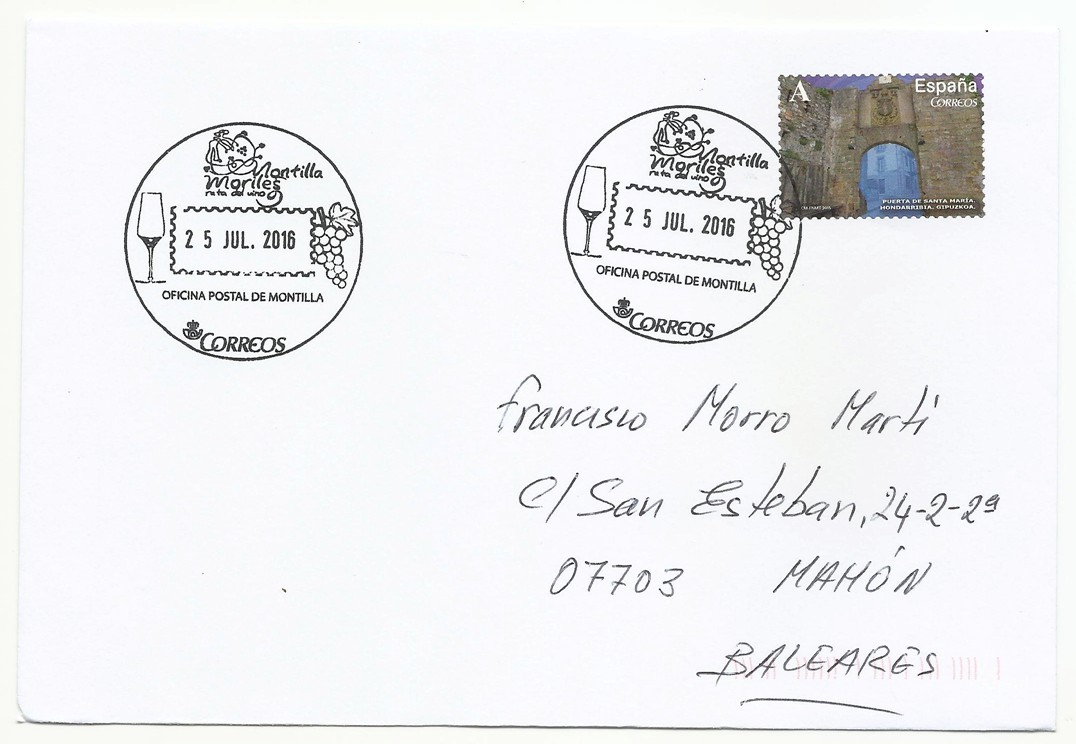 Montilla
Moriles
ruta del vino
25 JUL. 2016
OFICINA POSTAL DE MONTILLA
CORREOS
Montilla
Moriles
ruta del vino
25 JUL. 2016
OFICINA POSTAL DE MONTILLA
CORREOS
A España
CORREOS
PUERTA DE SANTA MARÍA.
HONDARRIBIA. GIPUZKOA.
Francisco Morro Martí
C/ San Esteban, 24-2-2ª
07703 MAHÓN
BALEARES